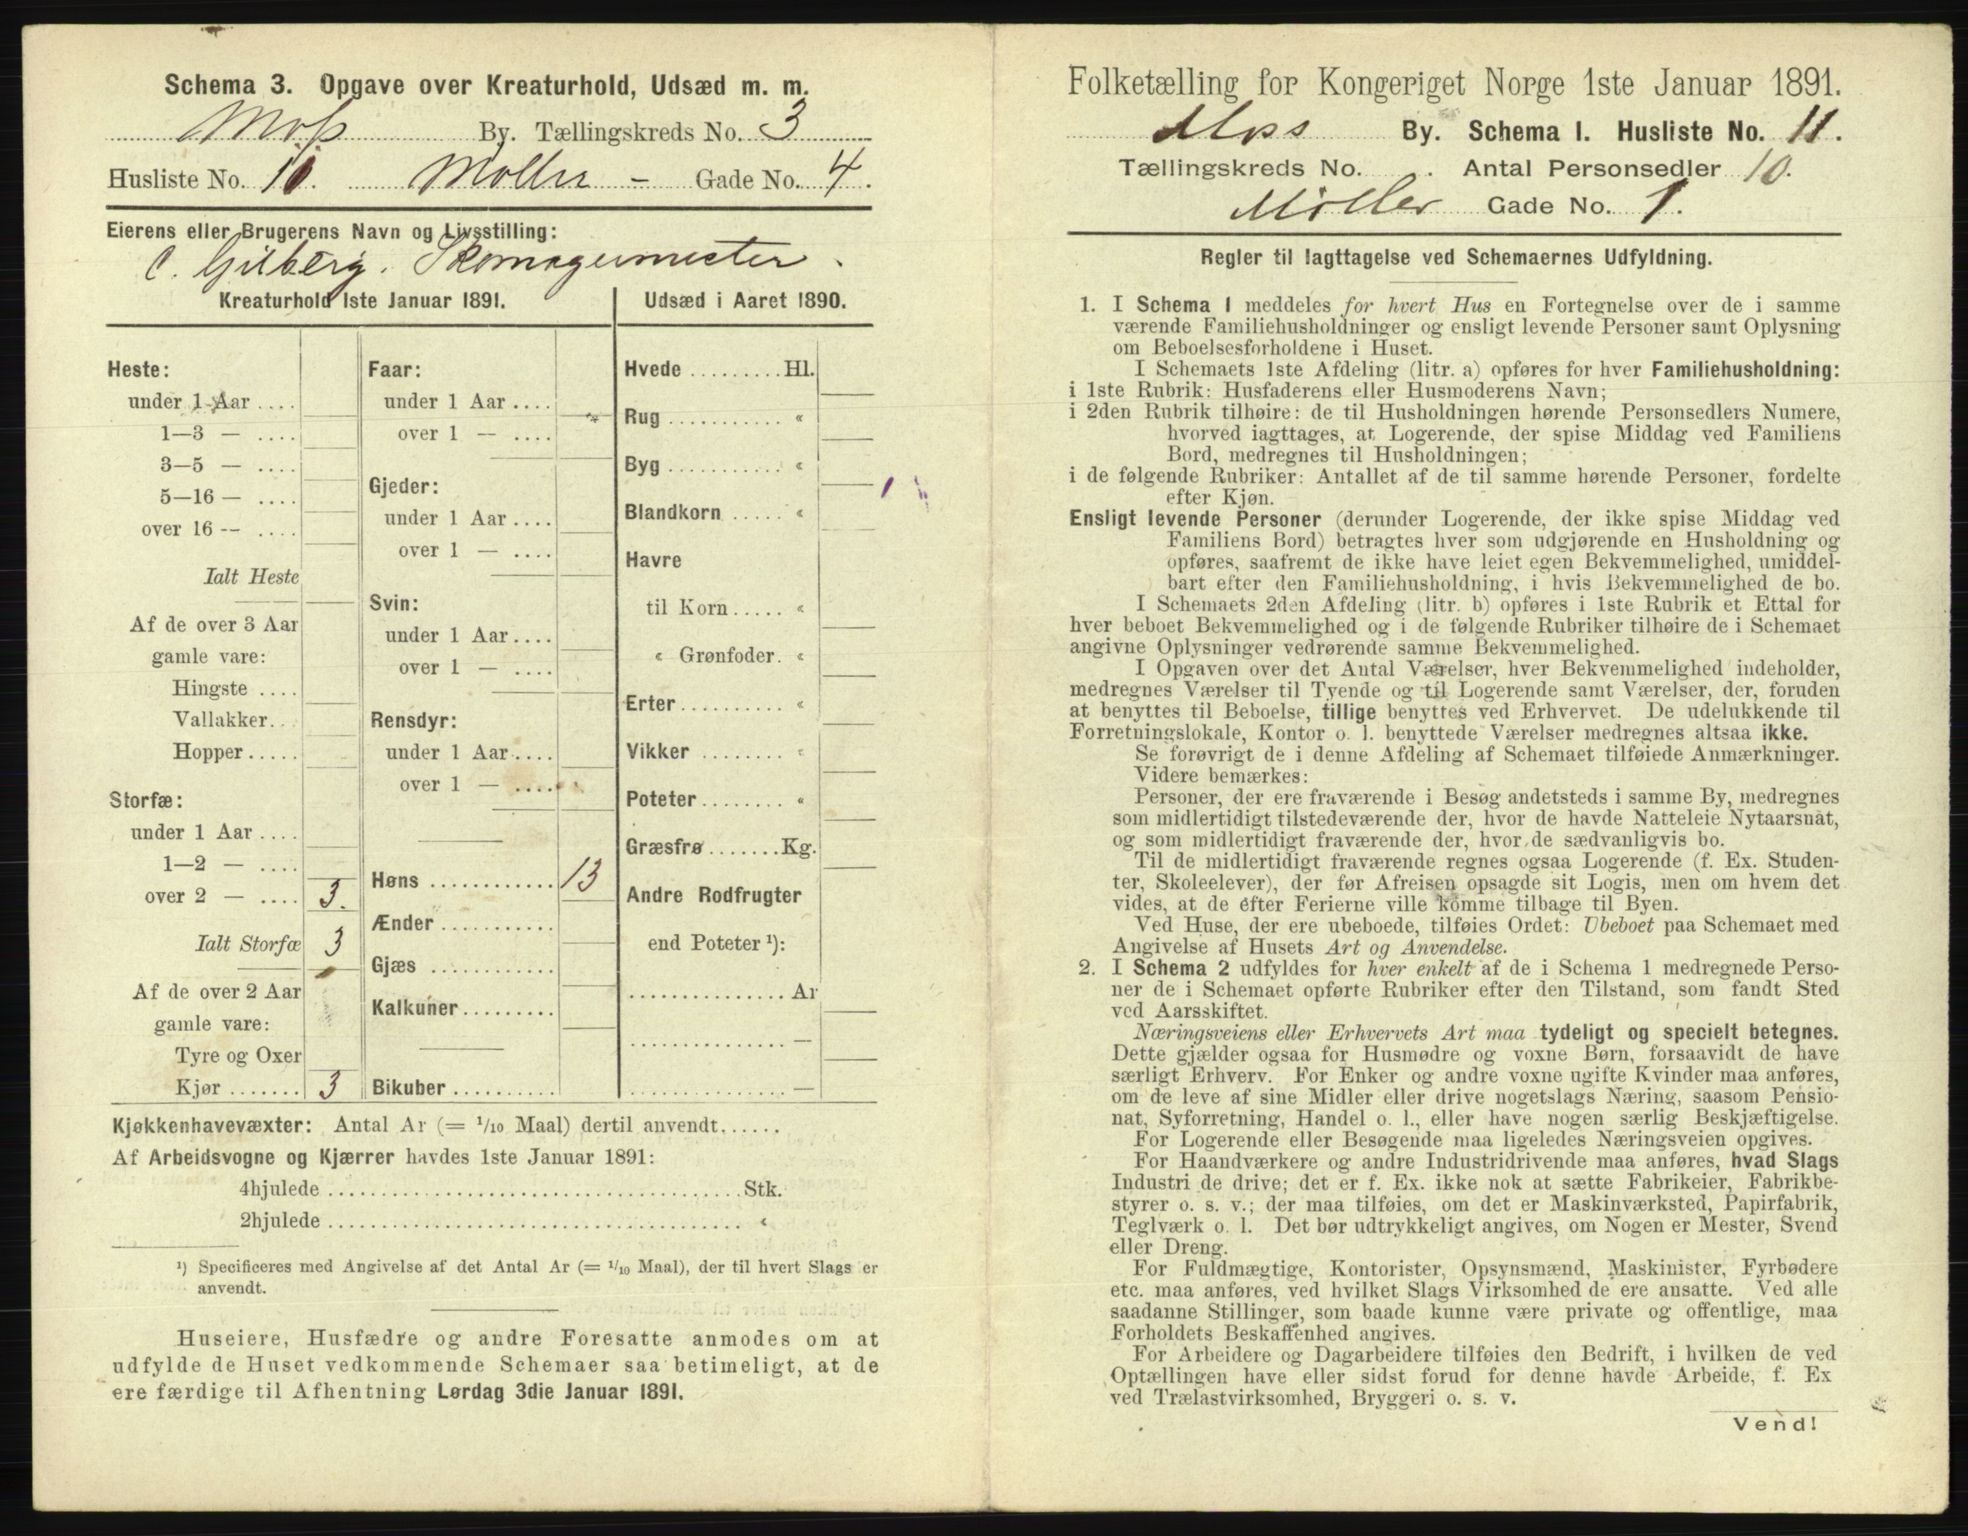 Schema 3. Opgave over Kreaturhold, Udsæd m. m.
Moss By. Tællingskreds No. 3
Husliste No. 11. Møller - Gade No. 4.
Eierens eller Brugerens Navn og Livsstilling:
C. Gilberg. Skomagermester.
Kreaturhold 1ste Januar 1891.
Heste:
under 1 Aar ....
1—3 — ....
3—5 — ....
5—16 — ....
over 16 -- ....
Ialt Heste
Af de over 3 Aar
gamle vare:
Hingste ....
Vallakker...
Hopper.....
Storfæ:
under 1 Aar ....
1—2 — ....
over 2 — .... 3.
Ialt Storfæ 3
Af de over 2 Aar
gamle vare:
Tyre og Oxer
Kjør ....... 3
Faar:
under 1 Aar ....
over 1 — ....
Gjeder:
under 1 Aar ....
over 1 — ....
Svin:
under 1 Aar ....
over 1 — ....
Rensdyr:
under 1 Aar ....
over 1 — ....
Høns ............ 13
Ænder ...........
Gjæs ............
Kalkuner.........
Bikuber ..........
Udsæd i Aaret 1890.
Hvede .........Hl.
Rug ........... «
Byg ........... «
Blandkorn ..... «
Havre
til Korn..... «
« Grønfoder. «
Erter.......... «
Vikker ........ «
Poteter........ «
Græsfrø .......Kg.
Andre Rodfrugter
end Poteter ¹):
............... Ar
............... —
............... —
Kjøkkenhavevæxter: Antal Ar (= ¹/₁₀ Maal) dertil anvendt......
Af Arbeidsvogne og Kjærrer havdes 1ste Januar 1891:
4hjulede ........................................Stk.
2hjulede ........................................ «
¹) Specificeres med Angivelse af det Antal Ar (= ¹/₁₀ Maal), der til hvert Slags er
anvendt.
Huseiere, Husfædre og andre Foresatte anmodes om at
udfylde de Huset vedkommende Schemaer saa betimeligt, at de
ere færdige til Afhentning Lørdag 3die Januar 1891.
Folketælling for Kongeriget Norge 1ste Januar 1891.
Moss By. Schema I. Husliste No. 11.
Tællingskreds No. . Antal Personsedler 10.
Møller Gade No. 1.
Regler til Iagttagelse ved Schemaernes Udfyldning.
1. I Schema I meddeles for hvert Hus en Fortegnelse over de i samme
værende Familiehusholdninger og ensligt levende Personer samt Oplysning
om Beboelsesforholdene i Huset.
I Schemaets 1ste Afdeling (litr. a) opføres for hver Familiehusholdning:
i 1ste Rubrik: Husfaderens eller Husmoderens Navn;
i 2den Rubrik tilhøire: de til Husholdningen hørende Personsedlers Numere,
hvorved iagttages, at Logerende, der spise Middag ved Familiens
Bord, medregnes til Husholdningen;
i de følgende Rubriker: Antallet af de til samme hørende Personer, fordelte
efter Kjøn.
Ensligt levende Personer (derunder Logerende, der ikke spise Middag ved
Familiens Bord) betragtes hver som udgjørende en Husholdning og
opføres, saafremt de ikke have leiet egen Bekvemmelighed, umiddel-
bart efter den Familiehusholdning, i hvis Bekvemmelighed de bo.
I Schemaets 2den Afdeling (litr. b) opføres i 1ste Rubrik et Ettal for
hver beboet Bekvemmelighed og i de følgende Rubriker tilhøire de i Schemaet
angivne Oplysninger vedrørende samme Bekvemmelighed.
I Opgaven over det Antal Værelser, hver Bekvemmelighed indeholder,
medregnes Værelser til Tyende og til Logerende samt Værelser, der, foruden
at benyttes til Beboelse, tillige benyttes ved Erhvervet. De udelukkende til
Forretningslokale, Kontor o. l. benyttede Værelser medregnes altsaa ikke.
Se forøvrigt de i denne Afdeling af Schemaet tilføiede Anmærkninger.
Videre bemærkes:
Personer, der ere fraværende i Besøg andetsteds i samme By, medregnes
som midlertidigt tilstedeværende der, hvor de havde Natteleie Nytaarsnat,
og som midlertidigt fraværende der, hvor de sædvanligvis bo.
Til de midlertidigt fraværende regnes ogsaa Logerende (f. Ex. Studen-
ter, Skoleelever), der før Afreisen opsagde sit Logis, men om hvem det
vides, at de efter Ferierne ville komme tilbage til Byen.
Ved Huse, der ere ubeboede, tilføies Ordet: Ubeboet paa Schemaet med
Angivelse af Husets Art og Anvendelse.
2. I Schema 2 udfyldes for hver enkelt af de i Schema 1 medregnede Perso-
ner de i Schemaet opførte Rubriker efter den Tilstand, som fandt Sted
ved Aarsskiftet.
Næringsveiens eller Erhvervets Art maa tydeligt og specielt betegnes.
Dette gjælder ogsaa for Husmødre og voxne Børn, forsaavidt de have
særligt Erhverv. For Enker og andre voxne ugifte Kvinder maa anføres,
om de leve af sine Midler eller drive nogetslags Næring, saasom Pensio-
nat, Syforretning, Handel o. l., eller have nogen særlig Beskjæftigelse.
For Logerende eller Besøgende maa ligeledes Næringsveien opgives.
For Haandværkere og andre Industridrivende maa anføres, hvad Slags
Industri de drive; det er f. Ex. ikke nok at sætte Fabrikeier, Fabrikbe-
styrer o. s. v.; der maa tilføies, om det er Maskinværksted, Papirfabrik,
Teglværk o. l. Det bør udtrykkeligt angives, om Nogen er Mester, Svend
eller Dreng.
For Fuldmægtige, Kontorister, Opsynsmænd, Maskinister, Fyrbødere
etc. maa anføres, ved hvilket Slags Virksomhed de ere ansatte. Ved alle
saadanne Stillinger, som baade kunne være private og offentlige, maa
Forholdets Beskaffenhed angives.
For Arbeidere og Dagarbeidere tilføies den Bedrift, i hvilken de ved
Optællingen have eller sidst forud for denne havde Arbeide, f. Ex
ved Trælastvirksomhed, Bryggeri o. s. v.
Vend!